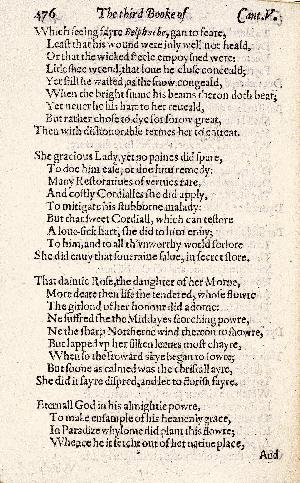 476 The third Booke of Cant. V.
Which seeing fayre Belphœbe, gan to feare,
Least that his wound were inly well not heald,
Or that the wicked steele empoysned were:
Litle shee weend, that loue he close conceald;
Yet still he wasted, as the snow congeald,
When the bright sunne his beams theron doth beat;
Yet neuer he his hart to her reueald,
But rather chose to dye for sorow great,
Then with dishonorable termes her to entreat.
She gracious Lady, yet no paines did spare,
To doe him ease, or doe him remedy:
Many Restoratiues of vertues rare,
And costly Cordialles she did apply,
To mitigate his stubborne malady:
But that sweet Cordiall, which can restore
A loue-sick hart, she did to him enuy;
To him, and to all th'vnworthy world forlore
She did enuy that soueraine salue, in secret store.
That daintie Rose, the daughter of her Morne,
More deare then life she tendered, whose flowre
The girlond of her honour did adorne:
Ne suffred she the Middayes scorching powre,
Ne the sharp Northerne wind thereon to showre,
But lapped vp her silken leaues most chayre,
When so the froward skye began to lowre;
But soone as calmed was the christall ayre,
She did it fayre dispred, and let to florish fayre.
Eternall God in his almightie powre,
To make ensample of his heauenly grace,
In Paradize whylome did plant this flowre;
Whence he it fetcht out of her natiue place,
And